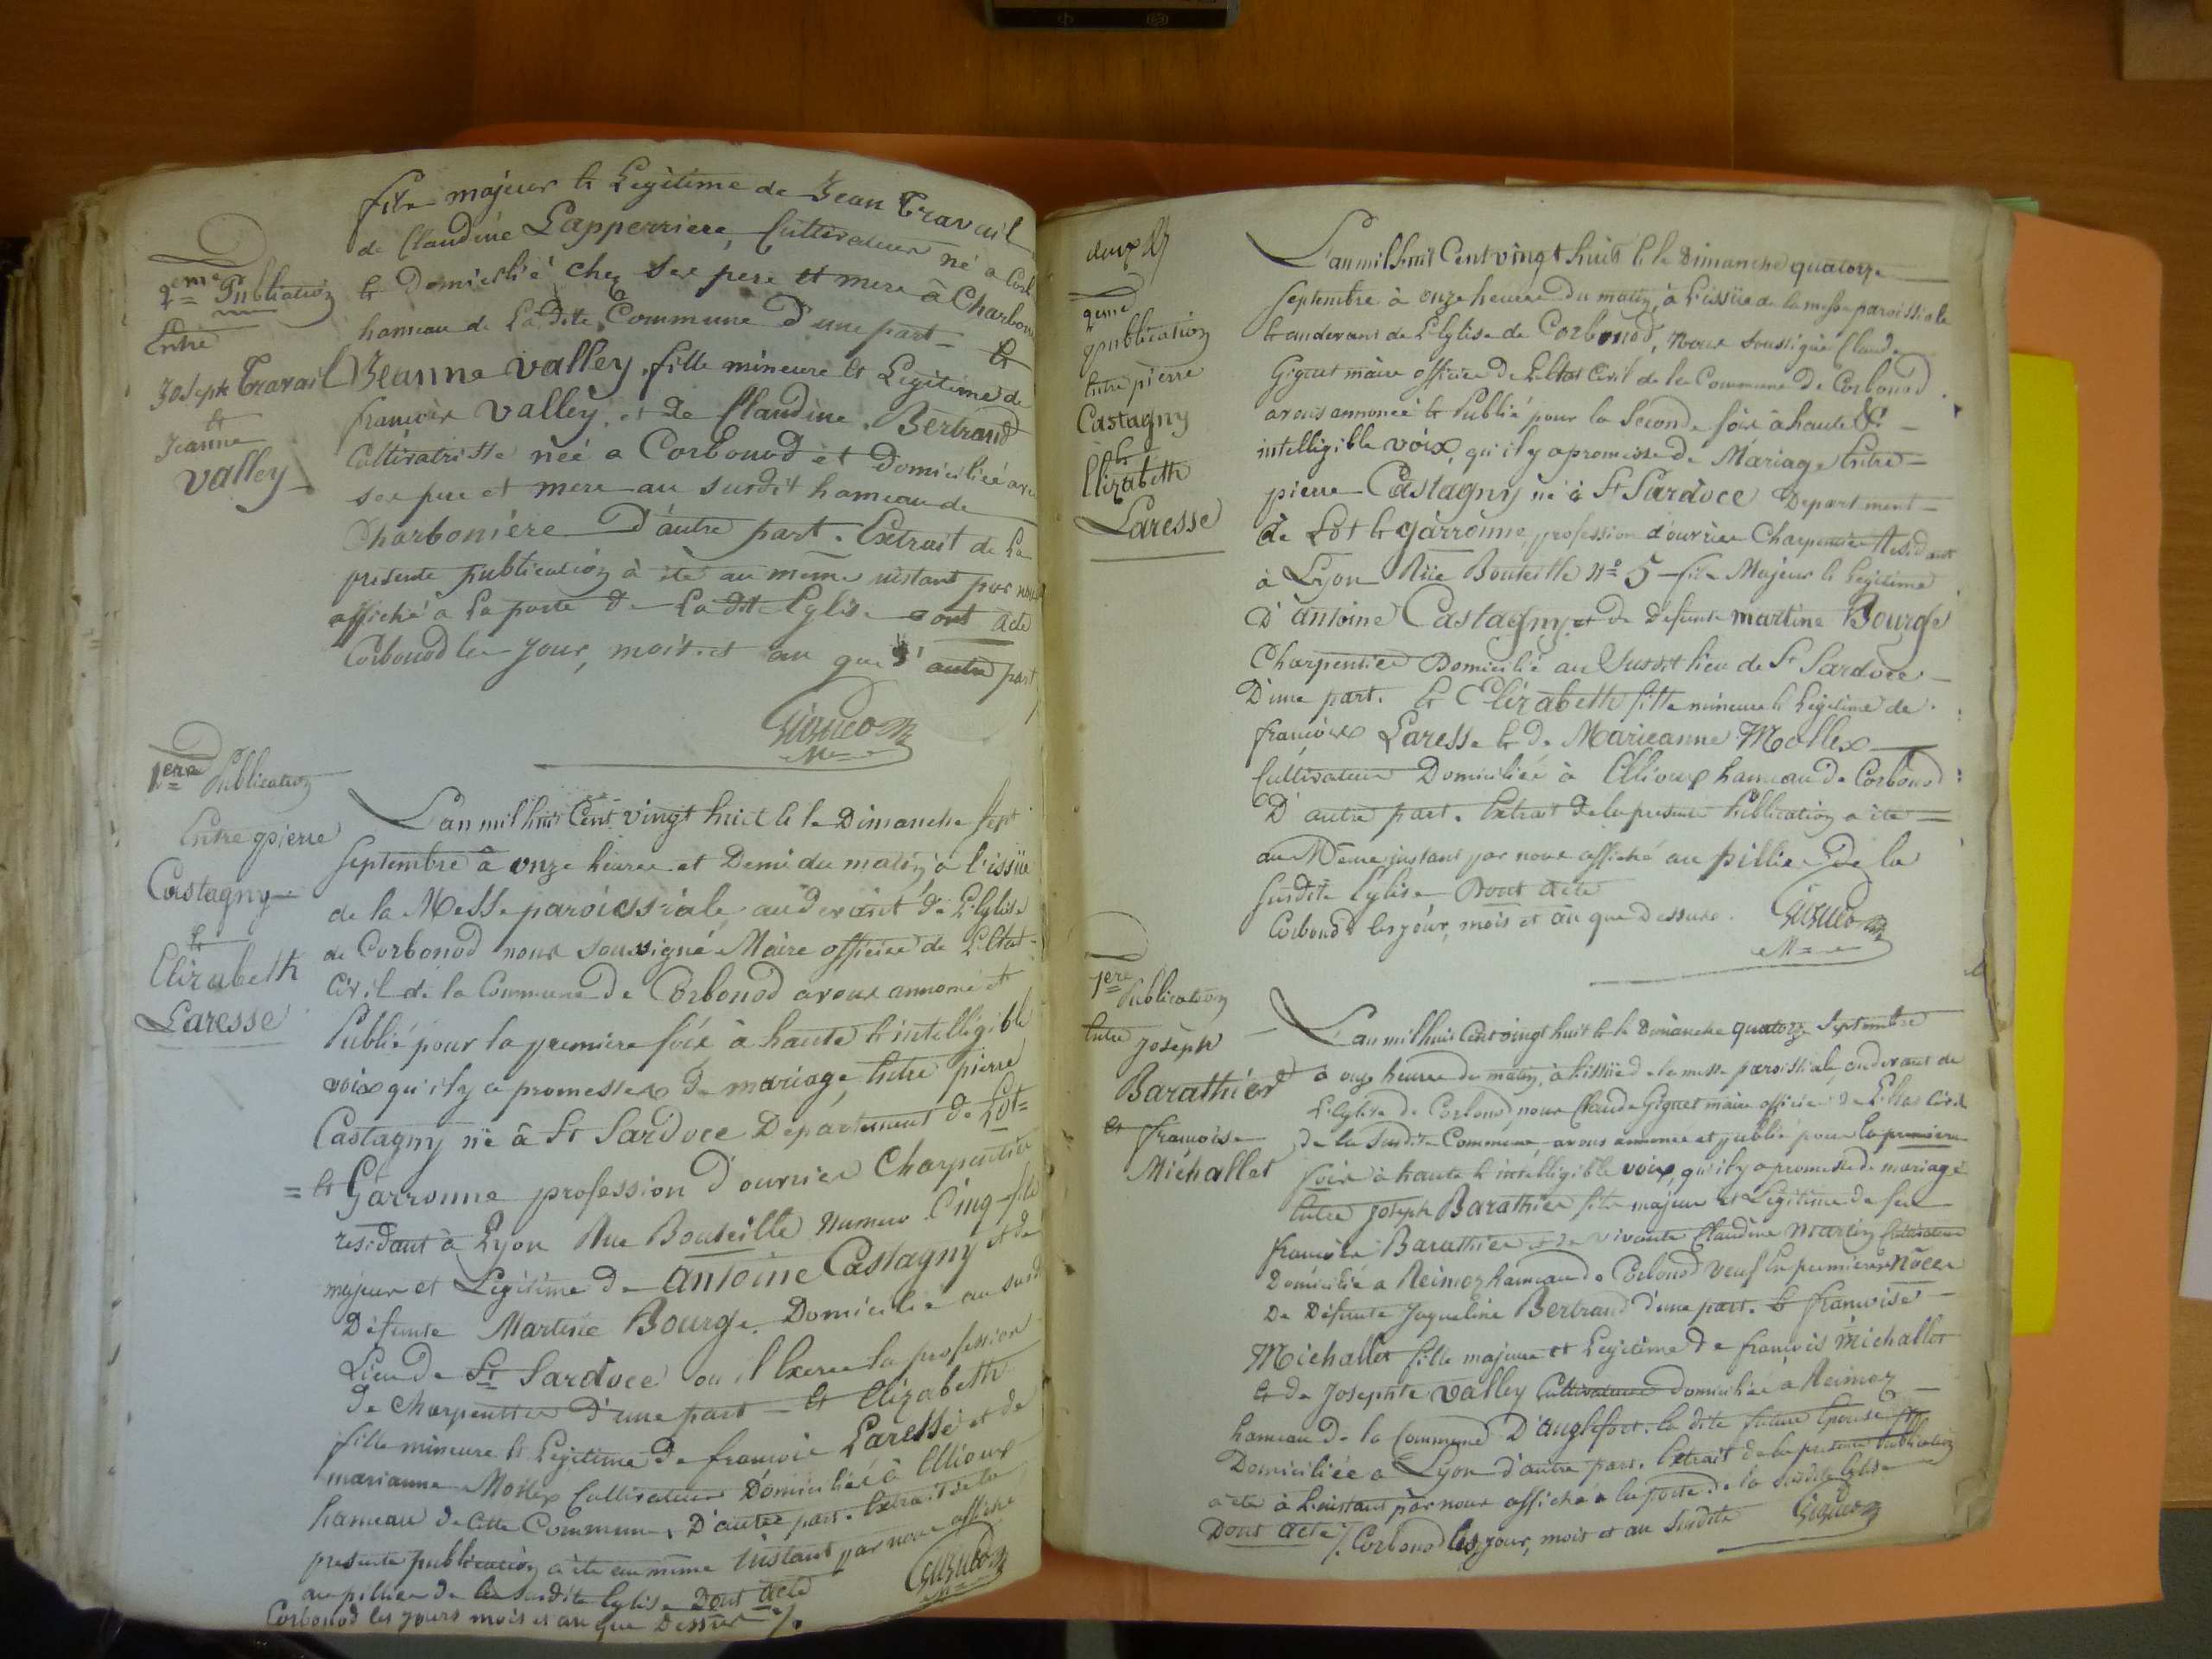 fils majeur et Legitime de Jean Travail
de Claudine Lapperriere, Cultivateur né a Corb
et Domicilié chez ses pere et mere à Charbon
hameau de La dite Commune d'une part = et
2eme Publication
Entre
Joseph Travail
et
Jeanne
Valley
Jeanne Valley, fille mineure et Legitime de
françois Valley, et de Claudine Bertrand
Cultivatrisse née a Corbonod et Domiciliée avec
ses pere et mere au susdit hameau de
Charboniére D'autre part. Extrait de La
presente publication à été au même instant par nous
affiché a La porte de La dite Eglise Dont acte
Corbonod les jour, mois et an que d'autre part
1ere Publication
Entre pierre
Castagny
et
Elizabeth
Laresse
L'an mil huit Cent vingt huit et le Dimanche sept
Septembre à onze heures et Demi du matin, à l'issüe
de la Messe paroissiale, au devant de L'Eglise
de Corbonod nous soussigné Maire officier de L'Etat
Civil de la Commune de Corbonod avons annoncé et
Publié pour la premiere fois à haute et intelligible
voix qu'il y a promesses de mariage, Entre pierre
Castagny né à St Sardoce Département de Lot=
= et Garronne profession D'ouvrier Charpentier
residant à Lyon Rue Bouteille Numero Cinq fils
majeur et Legitime de antoine Castagny et de
Défunte Martine Bourge, Domicilié au susd
Lieu de St Sardoce ou il Exerce la profession
de Charpentier d'une part = et Elizabeth
fille mineure et Legitime de francois Laresse et de
marianne Mollex Cultivateur Domiciliée à Ellioux
hameau de Cette Commune, D'autre part. Extrait de la
presente publication a été au même instant par nous affiché
au pillier de la susdite Eglise Dont acte
Corbonod les jours mois et an que Dessus ./.
2eme
publication
Entre pierre
Castagny
et
Elizabeth
Laresse
L'an mil huit Cent vingt huit et le Dimanche quatorze
Septembre à onze heures Du matin, à L'issüe de la messe paroissiale
et au devant de L'Eglise de Corbonod, Nous soussigné Claude
Giguet maire officier de L'Etat Civil de la Commune de Corbonod
avons annoncé et Publié pour la Seconde fois à haute &
intelligible voix, qu'il y a promesse de Mariage Entre
pierre Castagny né à St Sardoce Departement
de Lot et Garronne, profession d'ouvrier Charpentier Residant
à Lyon Rüe Bouteille No 5 fils Majeur et Legitime
D'antoine Castagny et de Defunte martine Bourge
Charpentier Domicilié au Susdit lieu de St Sardoce
D'une part. et Elizabeth fille mineure et Legitime de
françois Laresse et de Marieanne Mollex
Cultivateur Domiciliée à Ellioux hameau de Corbonod
D'autre part. Extrait de la presente Publication a été
au Même instant par nous affiché au pillier de la
susdite Eglise Dont acte
Corbonod les jour, mois et an que Dessus.
1ere
Publication
Entre Joseph
Barathier
et françoise
Michallet
L'an mil huit Cent vingt huit et le Dimanche quatorze Septembre
à onze heures du matin, à L'issüe de la messe paroissiale, au devant de
L'Eglise de Corbonod, nous Claude Giguet maire officier de L'Etat Civil
de la susdite Commune avons annoncé et publié pour la premiere
fois à haute et intelligible voix, qu'il y a promesse de mariage
Entre Joseph Barathier fils majeur et Legitime de feu
francois Barathier et de vivante Claudine Martin Cultivateur
Domicilié a Reimoz hameau de Corbonod veuf En premieres Nôces
De Défunte Jaqueline Bertrand d'une part. et francoise
Michallet fille majeure et Legitime de francois Michallet
et de Josephte Valley Cultivateur domiciliée à Reimoz
hameau de la Commune D'anglefort. la dite future Epouse
Domiciliée a Lyon d'autre part. Extrait de la presente Publication
a été à L'instant par nous affiché a la porte de la susdite Eglise
Dont acte ./. Corbonod les jour, mois et an susdits